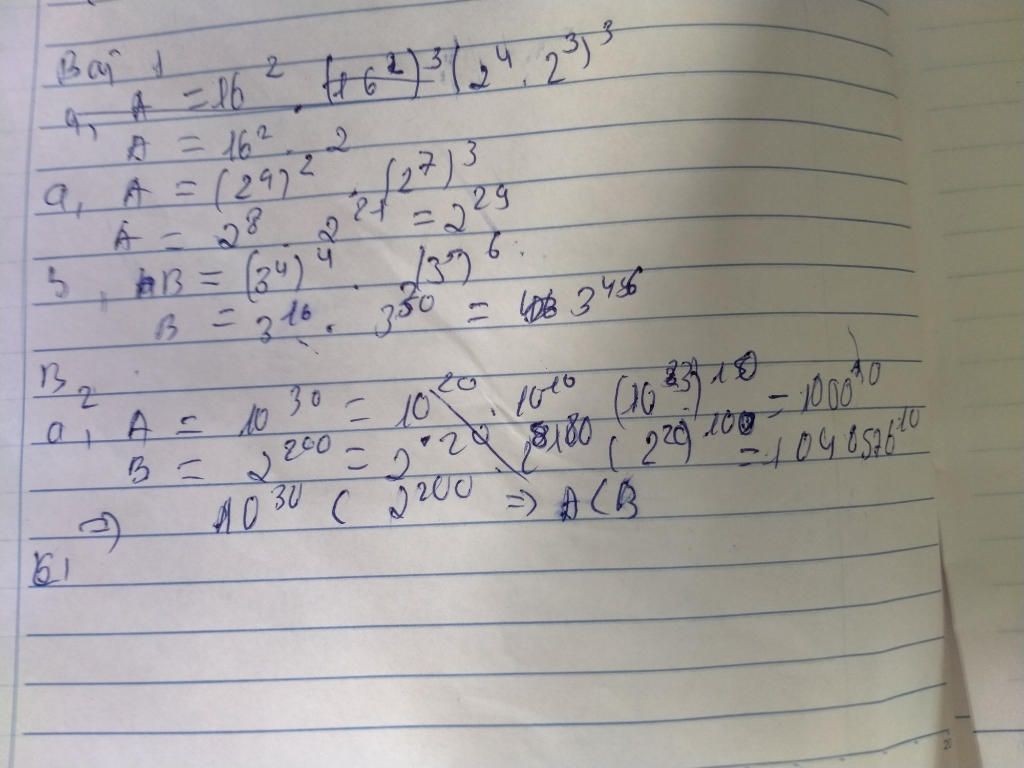 Bài 1
a, A = 16² . (16²)³ (2⁴ . 2³)³
A = 16² . 2
a, A = (2⁴)² . (2⁷)³
A = 2⁸ . 2²¹ = 2²⁹
b, B = (3⁴)⁴ . (3⁵)⁶
B = 3¹⁶ . 3³⁰ = 3⁴⁶
B2
a, A = 10³⁰ = 10²⁰ . 10¹⁰ (10³)¹⁰ = 1000¹⁰
B = 2²⁰⁰ = 2²⁰ . 2¹⁸⁰ (2²⁰)¹⁰ = 1048576¹⁰
=> 10³⁰ < 2²⁰⁰ => A < B